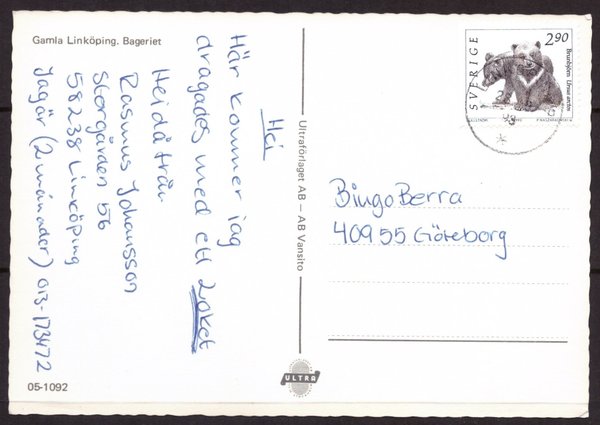 Gamla Linköping. Bageriet
Hei
Här kommer jag
dragades med ett Loket
Hei då från
Rasmus Johansson
Storgården 56
58238 Linköping
Jagär (2 månader) 013-173472
05-1092
Ultraförlaget AB – AB Vansito
ULTRA
SVERIGE
2.90
Brunbjörn Ursus arctos
Bingo Berra
40955 Göteborg